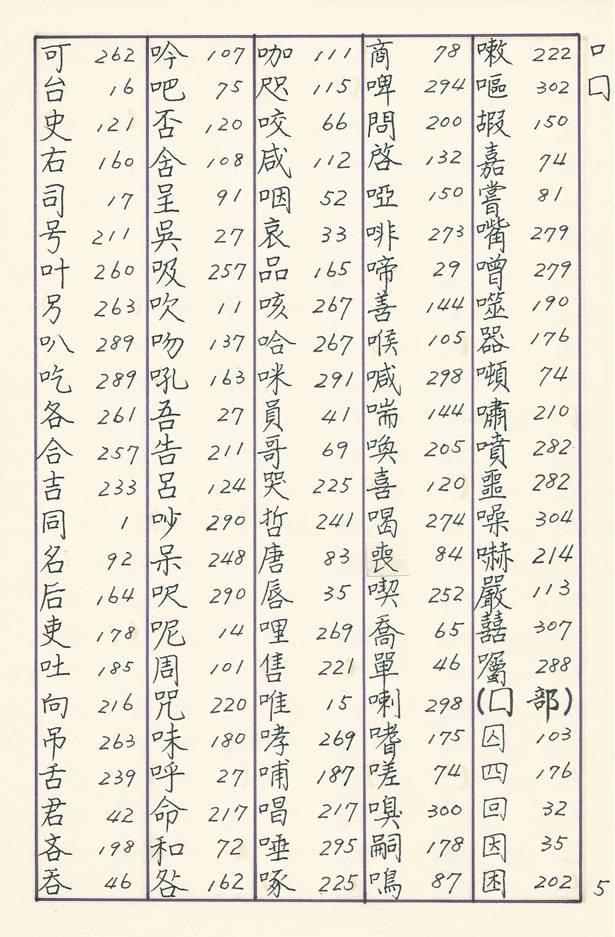 口
囗
可 262
台 16
史 121
右 160
司 17
号 211
叶 260
另 263
叭 289
吃 289
各 261
合 257
吉 233
同 1
名 92
后 164
吏 178
吐 185
向 216
吊 263
舌 239
君 42
吝 198
吞 46
吟 107
吧 75
否 120
含 108
呈 91
吳 27
吸 257
吹 11
吻 137
吼 163
吾 27
告 211
呂 124
吵 290
呆 248
呎 290
呢 14
周 101
咒 220
味 180
呼 27
命 217
和 72
咎 162
咖 111
咫 115
咬 66
咸 112
咽 52
哀 33
品 165
咳 267
哈 267
咪 291
員 41
哥 69
哭 225
哲 241
唐 83
唇 35
哩 269
售 221
唯 15
哮 269
哺 187
唱 217
唾 295
啄 225
商 78
啤 294
問 200
啓 132
啞 150
啡 273
啼 29
善 144
喉 105
喊 298
喘 144
喚 205
喜 120
喝 274
喪 84
喫 252
喬 65
單 46
喇 298
嗜 175
嗟 74
嗅 300
嗣 178
鳴 87
嗽 222
嘔 302
嘏 150
嘉 74
嘗 81
嘴 279
噌 279
噬 190
器 176
噸 74
嘯 210
噴 282
噩 282
噪 304
嚇 214
嚴 113
囍 307
囑 288
(囗部)
囚 103
四 176
回 32
因 35
困 202
5